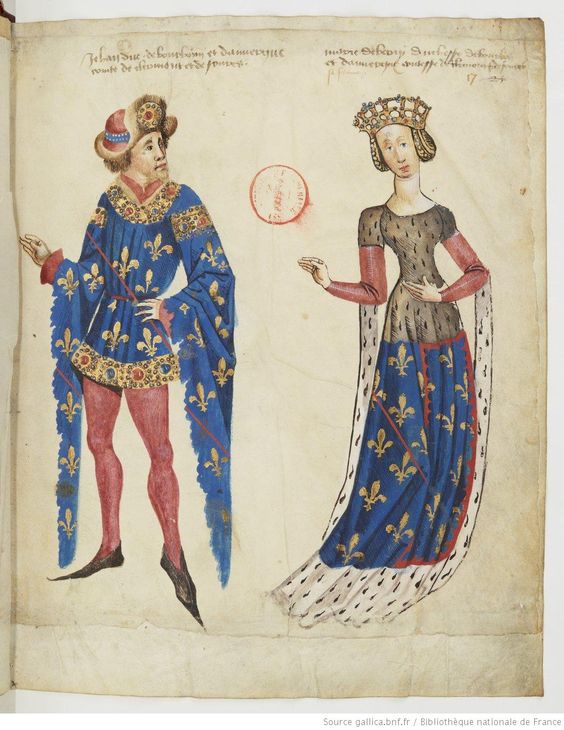 Jehan duc de bourbon et dauvergne
conte de clermont et de forez
marie de berry duchesse de bourbon
et dauvergne contesse de clermont
17
Source gallica.bnf.fr / Bibliothèque nationale de France